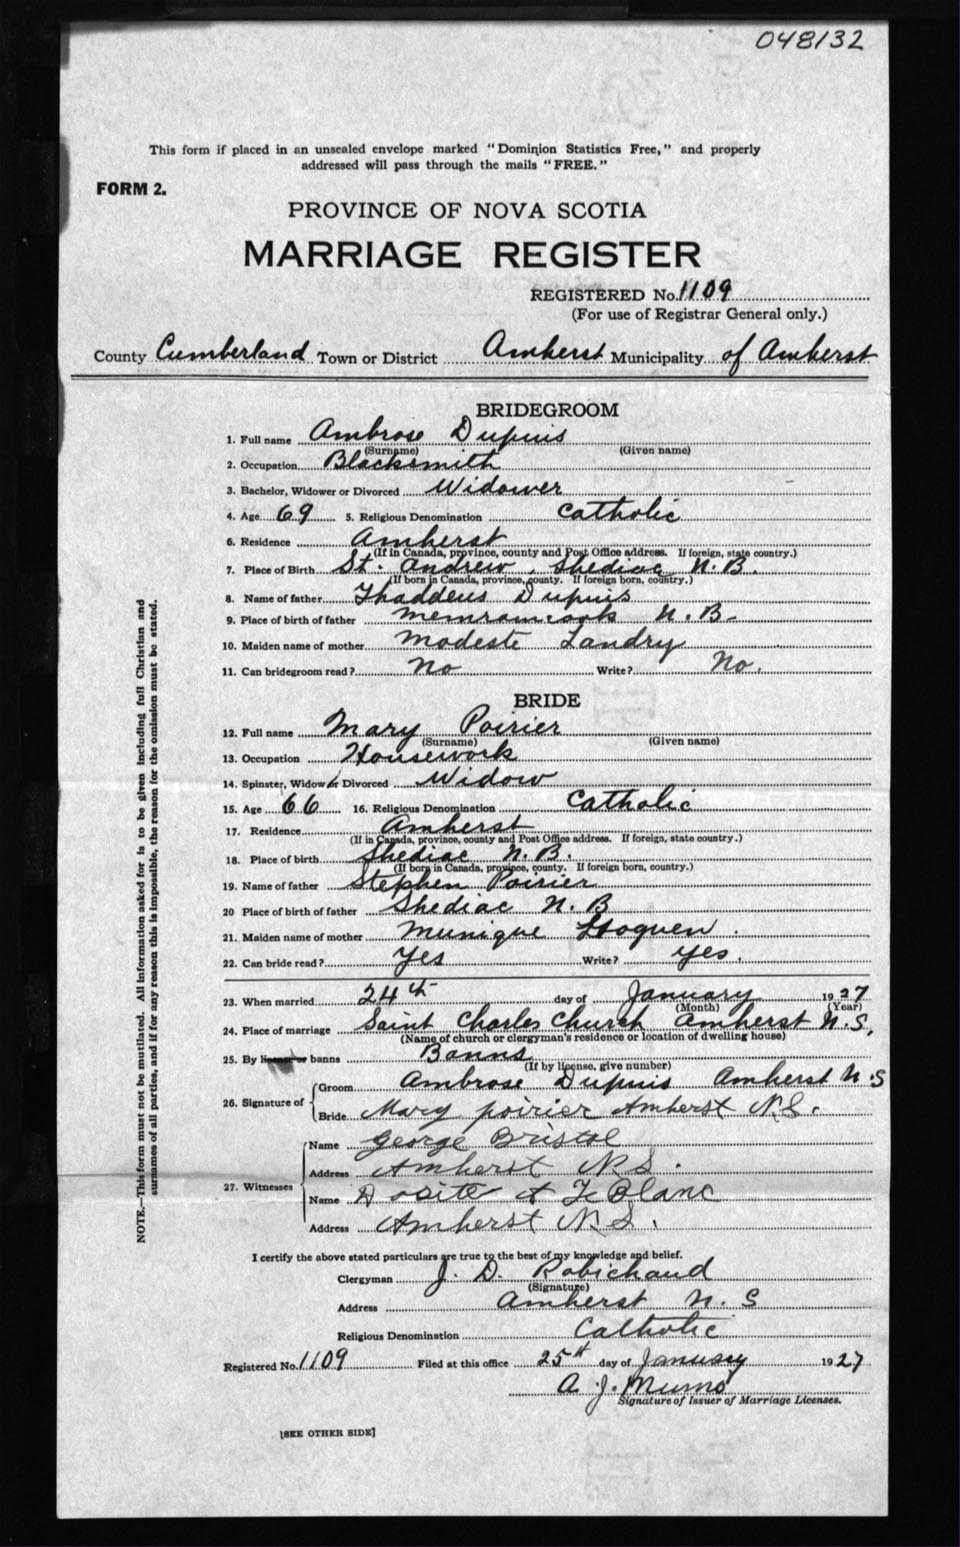 048132
This form if placed in an unsealed envelope marked "Dominion Statistics Free," and properly
addressed will pass through the mails "FREE."
FORM 2.
PROVINCE OF NOVA SCOTIA
MARRIAGE REGISTER
REGISTERED No. 1109
(For use of Registrar General only.)
County Cumberland Town or District Amherst Municipality of Amherst
BRIDEGROOM
1. Full name Ambrose Dupuis
(Surname) (Given name)
2. Occupation Blacksmith
3. Bachelor, Widower or Divorced Widower
4. Age 69 5. Religious Denomination Catholic
6. Residence Amherst
(If in Canada, province, county and Post Office address. If foreign, state country.)
7. Place of Birth St. Andrew, Shediac N.B.
(If born in Canada, province, county. If foreign born, country.)
8. Name of father Thaddeus Dupuis
9. Place of birth of father Memramcook N.B.
10. Maiden name of mother Modeste Landry
11. Can bridegroom read? No Write? No.
BRIDE
12. Full name Mary Poirier
(Surname) (Given name)
13. Occupation Housework
14. Spinster, Widow or Divorced Widow
15. Age 66 16. Religious Denomination Catholic
17. Residence Amherst
(If in Canada, province, county and Post Office address. If foreign, state country.)
18. Place of birth Shediac N.B.
(If born in Canada, province, county. If foreign born, country.)
19. Name of father Stephen Poirier
20 Place of birth of father Shediac N.B
21. Maiden name of mother Munique
22. Can bride read? Yes Write? yes.
23. When married 24th day of January 1927
(Month) (Year)
24. Place of marriage Saint Charles Church Amherst N.S.
(Name of church or clergyman's residence or location of dwelling house)
25. By license or banns Banns
(If by license, give number)
26. Signature of Groom Ambrose Dupuis Amherst N.S
Bride Mary poirier Amherst N.S.
27. Witnesses Name George Bristol
Address Amherst N.S.
Name Dosite LeBlanc
Address Amherst N.S.
I certify the above stated particulars are true to the best of my knowledge and belief.
Clergyman J. D. Robichaud
(Signature)
Address Amherst N.S
Religious Denomination Catholic
Registered No. 1109 Filed at this office 25th day of January 1927
A. J.
Signature of Issuer of Marriage Licenses.
[SEE OTHER SIDE]
NOTE.—This form must not be mutilated. All information asked for is to be given including full Christian and
surnames of all parties, and if for any reason this is impossible, the reason for the omission must be stated.